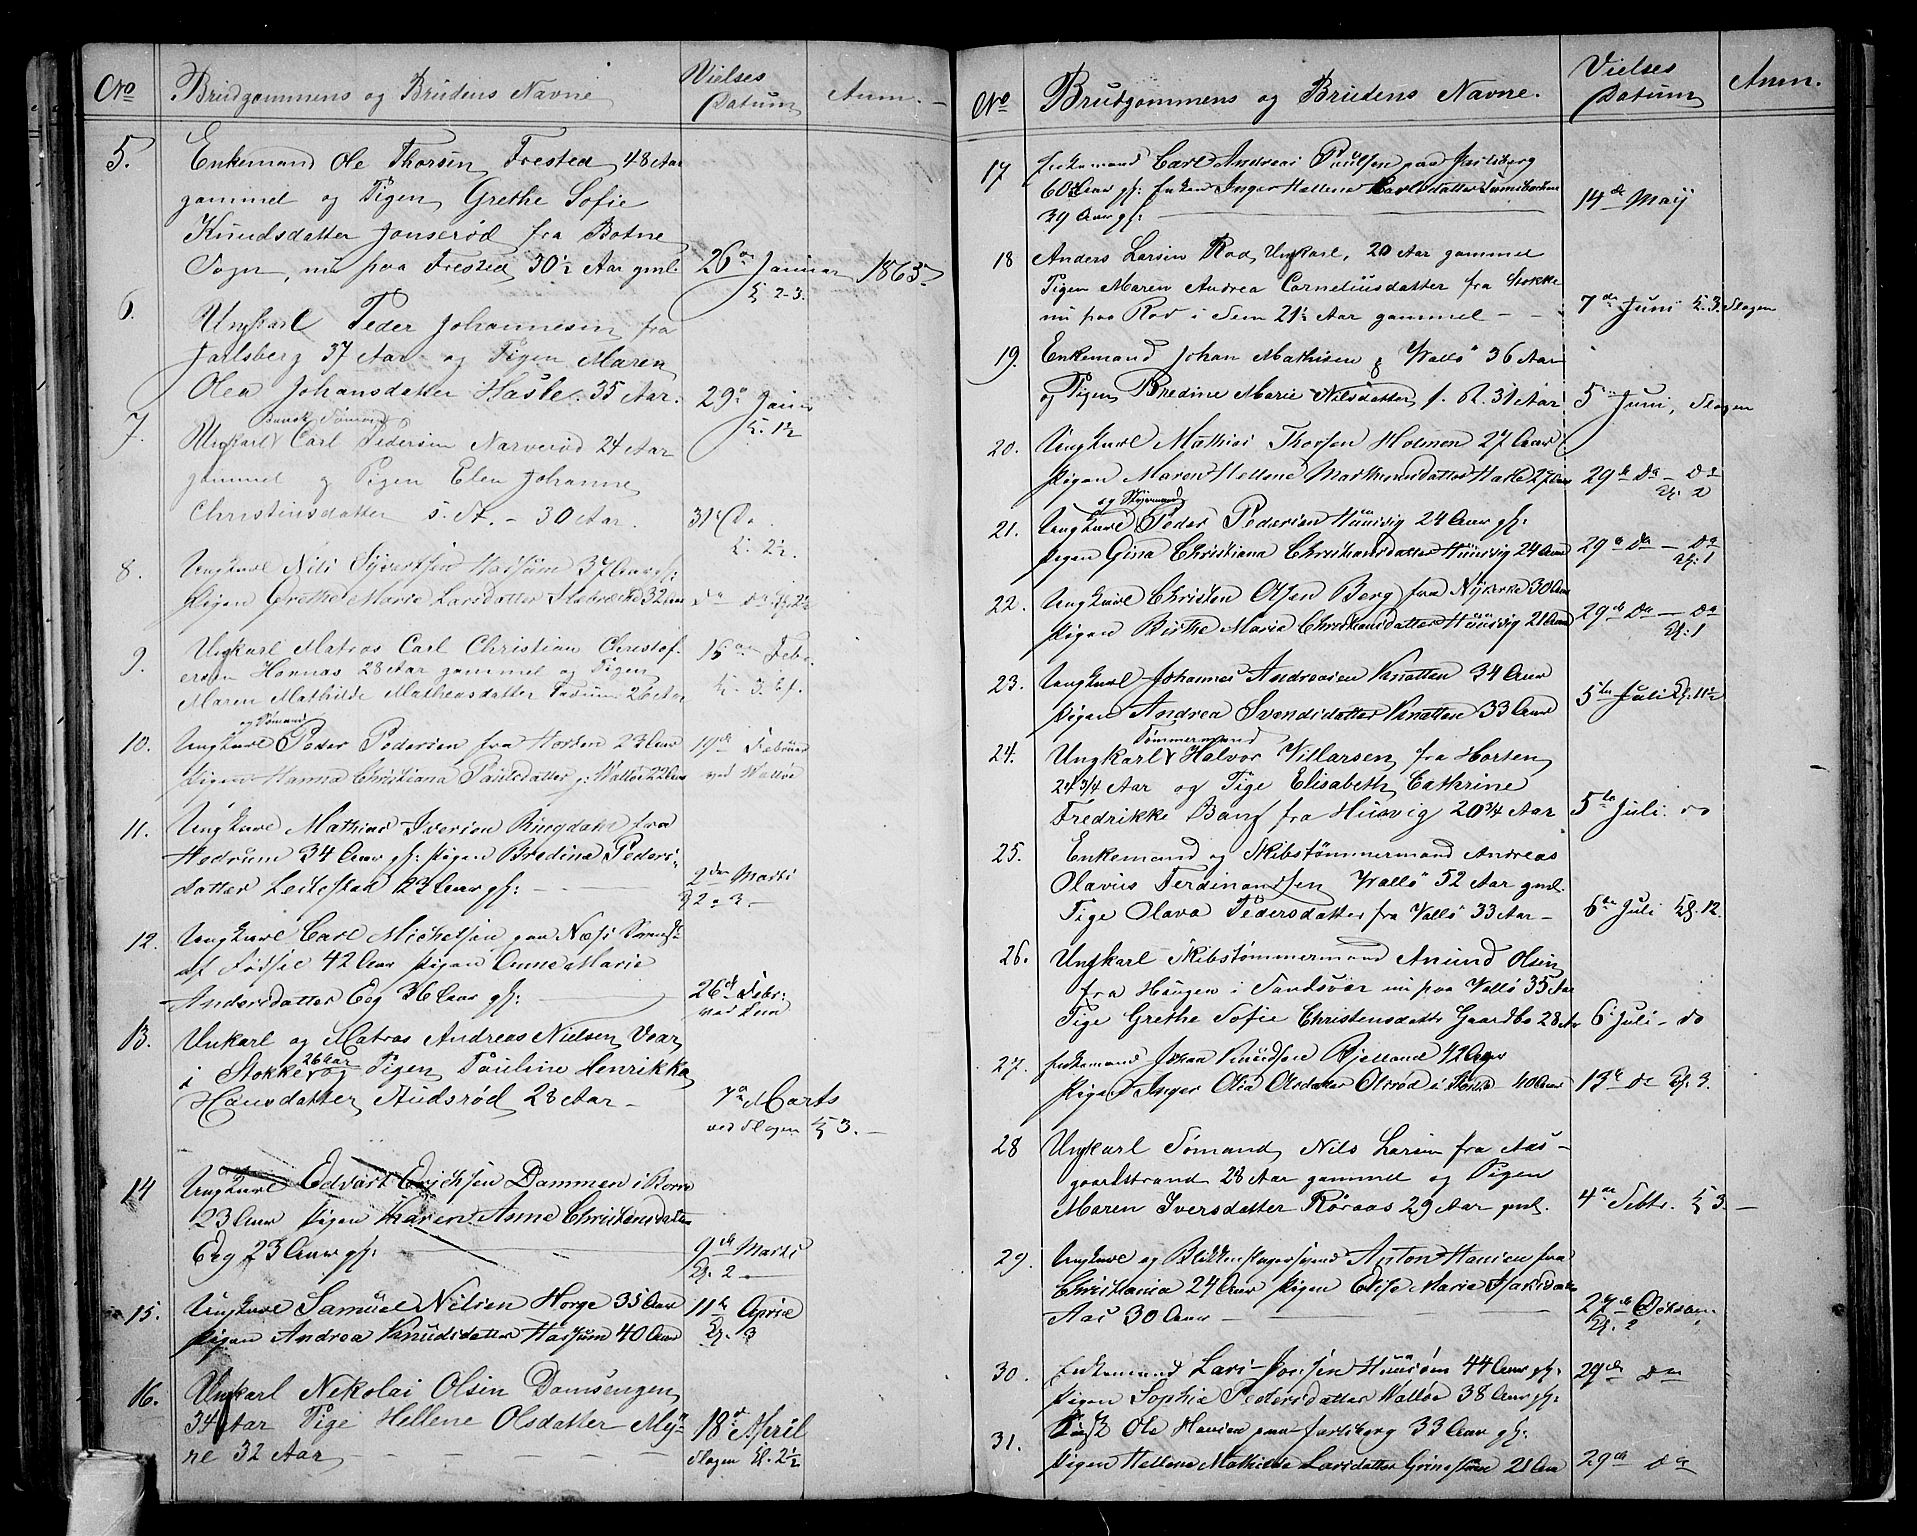 No Brudgommens og Brudens Navne Vielses Datum Anm.
5. Enkemand Ole Thorsen Frested 48 Aar
gammel og Pigen Grethe Sofie
Knudsdatter Jonserød fra Botne
Sogn, nu paa Frested 30½ Aar gml. 26de Januar 1863.
Kl. 2-3.
6. Ungkarl Peder Johannesen fra
Jarlsberg 37 Aar og Pigen Maren
Olea Johansdatter Hasle 35 Aar. 29de Januar
Kl. 1½
7. Ungkarl Carl Pedersen Narverød 24 Aar
gammel og Pigen Elen Johanne
Christensdatter s. St. - 30 Aar. 31te Do.
Kl. 2½.
8. Ungkarl Nils Syvertsen Hassum 37 Aar gl:
Pigen Grethe Marie Larsdatter 32 Aar do do Kl. 2½
9. Ungkarl Matros Carl Christian Christof-
ersen Hannas 28 Aar gammel og Pigen
Maren Mathilde Matheasdatter 26 Aar 15de Febr.
Kl. 3. Ef.
og Sømand
10. Ungkarl Peder Pedersen fra Horten 23 Aar 19de Februar
Pigen Hanna Christiana Paulsdatter p: Walløe 22 Aar ved Walløe
11. Ungkarl Mathias Iversen Ringdahl fra
Hedrum 34 Aar gl: Pigen Bredina Peders-
datter 23 Aar gl: - 2den Marts
Kl. 2 a 3. -
12. Ungkarl Carl Michelsen paa Næss Svensk
af Fødsel 42 Aar Pigen Anne Marie
Andersdatter Eeg 36 Aar gl: 26de Febr:
ved Sem
13. Unkarl og Matros Andreas Nielsen Voar
i Stokke 26 Aar og Pigen Pauline Henrikka
Hansdatter Audsrød 28 Aar - 7de Marts
ved Slagen Kl 3. -
14 Ungkarl Edvart Erichsen Dammen i Borre
23 Aar Pigen Karen Anne Christensdatter
Eeg 23 Aar gl: 9de Marts
Kl. 2 -
15. Ungkarl Samuel Nilsen Horge 35 Aar 11te April
Pigen Andrea Knudsdatter Hassum 40 Aar Kl. 3
16. Unkarl Nekolai Olsen Damsengen
34 Aar Pige Hellene Olsdatter My-
re 32 Aar - - - 18de April
Slagen Kl. 2½
No Brudgommens og Brudens Navne. Vielses Datum Anm.
17 Enkemand Carl Andreas Paulsen paa Jarlsberg
60 Aar gl: Enken Inger Hellene Carlsdatter
39 Aar gl: 14de May
18 Anders Larsen Rod, Ungkarl, 20 Aar gammel
Pigen Maren Andrea Corneliusdatter fra Stokke
nu paa Rod i Sem 21½ Aar gammel - - 7de Juni Kl. 3. Slagen
19. Enkemand Johan Mathisen Vallø 36 Aar
og Pigen Bredine Marie Nilsdatter 31 Aar 5 Juni, Slagen
20. Ungkarl Mathias Thorsen Holmen 27 Aar
Pigen Maren Hellene Marthinusdatter 27 Aar 29de Do - Do
Kl. 2
og Styrmand
21. Ungkarl Peder Pedersen Huusvig 24 Aar gl:
Pigen Gina Christiana Christiansdatter Huusvig 24 Aar 29de Do - Do
Kl: 1
22. Ungkarl Christen Olsen Berg fra Nykirke 30 Aar
Pigen Birthe Maria Christiansdatter Huusvig 21 Aar 29de Do - Do
Kl: 1
23. Ungkarl Johannes Andreasen Knatten 34 Aar
Pigen Andrea Svendsdatter Knatten 33 Aar 5te Juli Kl. 11½
Tømmermand
24. Ungkarl Halvor Villarsen fra Horten
24 3/4 Aar og Pige Elisabeth Cathrine
Fredrikke Bang fra Husvig 20 3/4 Aar 5te Juli. do
25. Enkemand og Skibstømmermand Andreas
Olavus Ferdinandsen Vallø 52 Aar gml.
Pige Olava Pedersdatter fra Vallø 33 Aar - 6te Juli Kl. 12.
26. Ungkarl Skibstømmermand Anund Olsen
fra Haugen i Sandsvær nu paa Vallø 35 Aar
Pige Grethe Sofie Christensdatter Gaardbo 28 Ar 6 Juli - do
27. Enkemand Johan Knudsen Bjelland 42 Aar
Pigen Inger Olia Olsdatter Olsrød i Sande 40 Aar 13de do Kl. 3.
28 Ungkarl Sømand Nils Larsen fra Aas-
gaardstrand 28 Aar gammel og Pigen
Maren Iversdatter Røraas 29 Aar gml. 4de Septbr. Kl 3. -
29. Ungkarl og Blikkenslagersvend Anton Hansen fra
Christiania 24 Aar Pigen Elise Marie
Aas 30 Aar - 27de October
Kl. 2
30. Enkemand Lars Jacobsen Huusøen 44 Aar gl: 29de Do
Pigen Sophia Pedersdatter Walløe 38 Aar gl:
31. Kusk Ole Hansen paa Jarlsberg 33 Aar gl:
Pigen Hellene Mathilde Larsdatter 21 Aar 29de Do